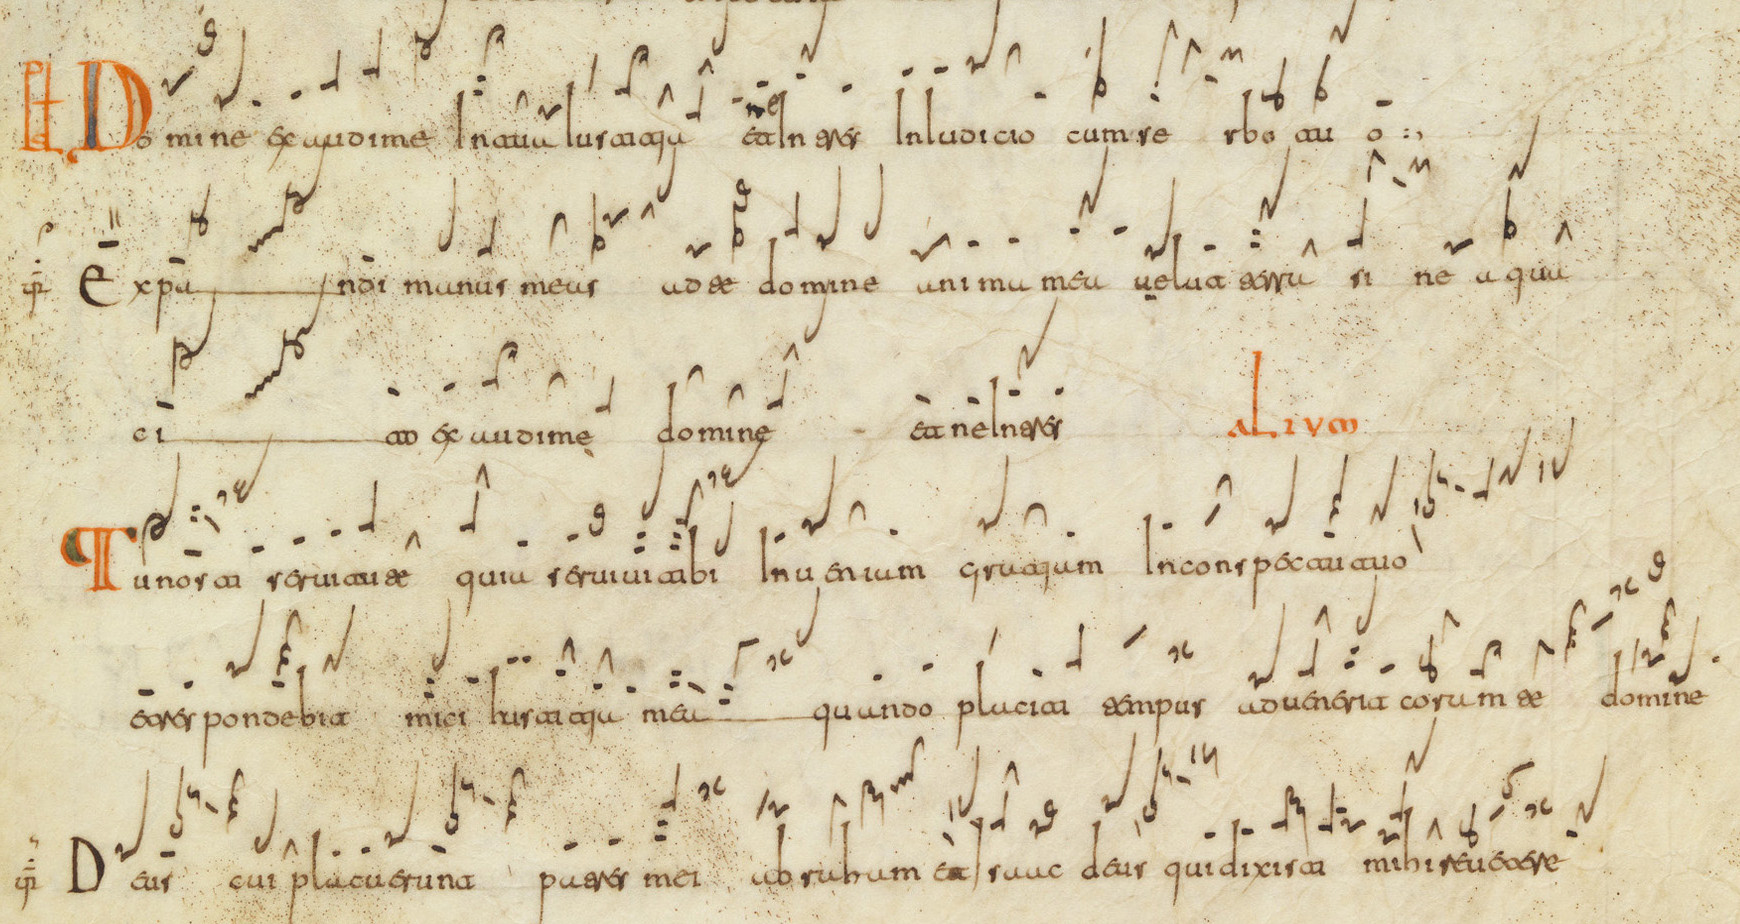 Domine exaudime In tua Iustitia et ne In tres In iudicio cum serbo tuo
Expandi manus meas ad te domine anima mea uelut terra sine aqua
cito exaudime domine et ne In tres ALIUM
Tu nosti seruitute quia seruiui tibi Inueniam gratiam In conspectu tuo
et respondebit mici Iustitia mea quando placiti tempus aduenerit coram te domine
Deus cui placuerunt patres mei abraham et Isaac deus qui dixisti mihi reuertere